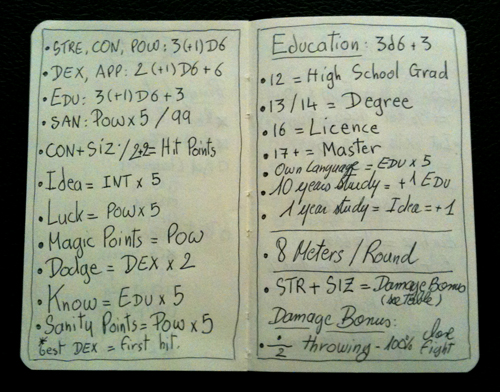 • STRE, CON, POW: 3(+1)D6
• DEX, APP: 2(+1)D6+6
• EDU: 3(+1)D6+3
• SAN: POW x 5 / 99
• CON+SIZ·/ 2 = Hit Points
• Idea = INT x 5
• Luck = POW x 5
• Magic Points = POW
• Dodge = DEX x 2
• Know = EDU x 5
• Sanity Points = POW x 5
* best DEX = first hit.
Education: 3d6+3
• 12 = High School Grad
• 13/14 = Degree
• 16 = Licence
• 17+ = Master
• Own Language = EDU x 5
• 10 years study = +1 EDU
• 1 year study = Idea = +1
• 8 Meters / Round
• STR + SIZ = Damage Bonus
(see Table)
Damage Bonus:
• ÷2 throwing - 100% close
fight